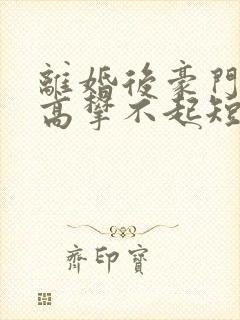 離婚後豪門
高攀不起短
齊印寶